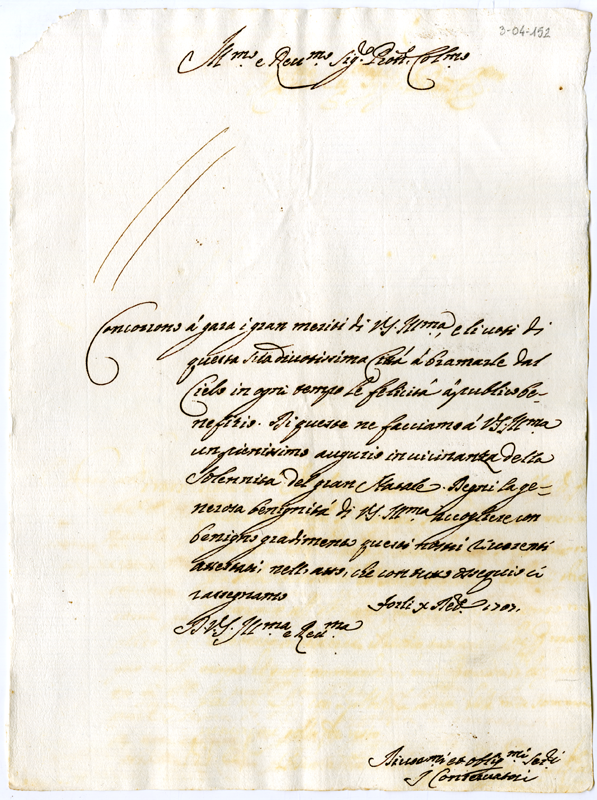 3-04-152
Ill.mo e Reu.mo Sig.r Pron. Col.mo
Concorrono á gara i gran meriti di V.S. Ill.ma, e li uoti di
questa sua diuotissima Città á bramarle dal
Cielo in ogni tempo le felicità á publico be-
nefizio. Di queste ne facciamo á V.S. Ill.ma
un pienissimo augurio in uicinanza della
Solennità del gran Natale. Degni la ge-
nerosa benignità di V.S. Ill.ma accogliere con
benigno gradimento questi nostri riuerenti
attestati, nell'atto, che con tutto ossequio ci
rassegniamo
Forlì x Xbre 1707.
D.V.S. Ill.ma e Reu.ma
Diuotmi et obblig.mi Ser.ri
I Conservatori